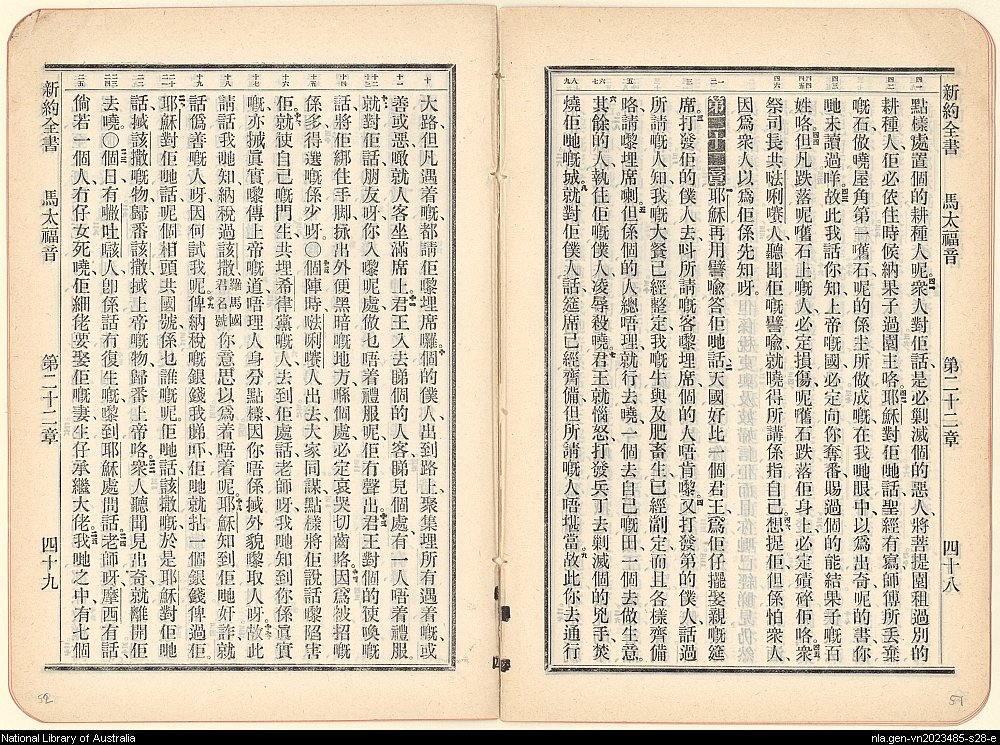 新約全書 馬太福音 第二十二章 四十八
點樣處置個的耕種人呢衆人對佢話是必剿滅個的惡人將菩提園租過別的
耕種人佢必依住時候納果子過園主咯耶穌對佢哋話聖經有寫師傅所丢棄
嘅石做嘵屋角第一嚿石呢的係主所做成嘅在我哋眼中以爲出奇呢的書你
哋未讀過咩故此我話你知上帝嘅國必定向你奪番賜過個的能結果子嘅百
姓咯但凡跌落呢嚿石上嘅人必定損傷呢嚿石跌落佢身上必定磧碎佢咯衆
祭司長共㖿唎㘔人聽聞佢嘅譬喩就曉得所講係指自己想捉佢但係怕衆人
因爲衆人以爲佢係先知呀
第二十二章耶穌再用譬喩答佢哋話天國好比一個君王爲佢仔擺娶親嘅筵
席打發佢的僕人去呌所請嘅客嚟埋席個的人唔肯嚟又打發第的僕人話過
所請嘅人知我嘅大餐已經整定我嘅牛與及肥畜生已經劏定而且各樣齊備
咯請嚟埋席喇但係個的人總唔理就行去嘵一個去自己嘅田一個去做生意
其餘的人執住佢嘅僕人凌辱殺嘵君王就惱怒打發兵丁去剿滅個的兇手焚
燒佢哋嘅城就對佢僕人話筵席已經齊備但所請嘅人唔堪當故此你去通行
新約全書 馬太福音 第二十二章 四十九
大路但凡遇着嘅都請佢嚟埋席囉個的僕人出到路上聚集埋所有遇着嘅或
善或惡噉就人客坐滿席上君王入去睇個的人客睇見個處有一人唔着禮服
就對佢話朋友呀你入嚟呢處做乜唔着禮服呢佢冇聲出君王對個的使喚嘅
話將佢綁住手脚抰出外便黑暗嘅地方喺個處必定哀哭切齒咯因爲被招嘅
係多得選嘅係少呀〇個陣時㖿唎㘔人出去大家同謀點樣將佢說話嚟陷害
佢就使自己嘅門生共埋希律黨嘅人去到佢處話老師呀我哋知到你係眞實
嘅亦搣眞實嚟傳上帝嘅道唔理人身分點樣因你唔係搣外貌嚟取人呀故此
請話我哋知納稅過該撒羅馬國君名號你意思以爲着唔着呢耶穌知到佢哋奸詐就
話僞善嘅人呀因何試我呢俾納稅嘅銀錢我睇吓佢哋就拈一個銀錢俾過佢
耶穌對佢哋話呢個相頭共國號係乜誰嘅呢佢哋話該撒嘅於是耶穌對佢哋
話搣該撒嘅物歸番該撒搣上帝嘅物歸番上帝咯衆人聽聞見出奇就離開佢
去嘵〇個日有𡃤吐㖠人卽係話冇復生嘅嚟到耶穌處問話老師呀摩西有話
倘若一個人冇仔女死嘵佢細佬要娶佢嘅妻生仔承繼大佬我哋之中有七個
52
51
National Library of Australia
nla.gen-vn2023485-s28-e